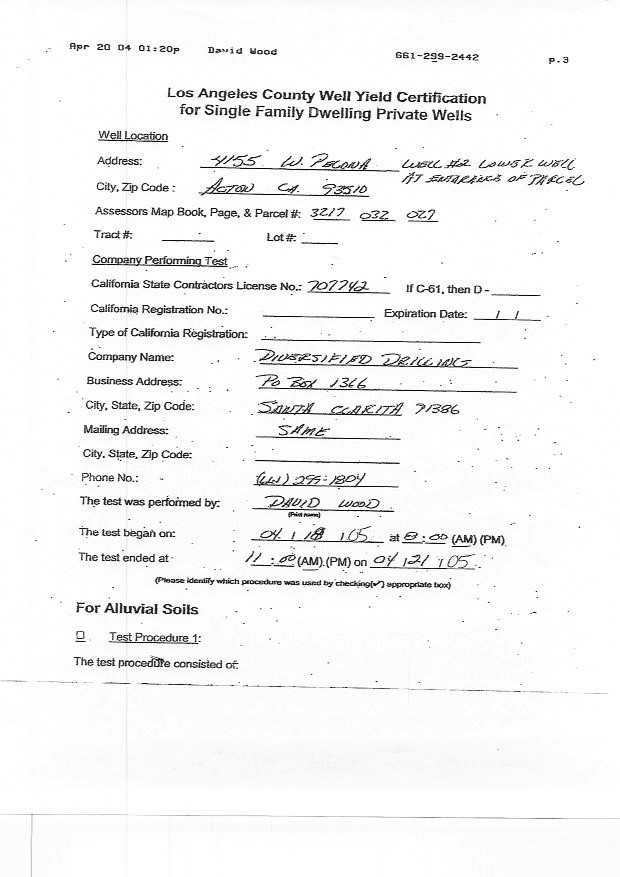 Apr 20 04 01:20p David Wood 661-299-2442 p.3
Los Angeles County Well Yield Certification
for Single Family Dwelling Private Wells
Well Location
Address: 4155 W. PELONA WELL #2 LOWER WELL
AT ENTARANCE OF PARCEL
City, Zip Code : ACTON CA. 93510
Assessors Map Book, Page, & Parcel #: 3217 032 027
Tract #: Lot #:
Company Performing Test
California State Contractors License No.: 707742 If C-61, then D -
California Registration No.: Expiration Date: / /
Type of California Registration:
Company Name: DIVERSIFIED DRILLING
Business Address: PO BOX 1366
City, State, Zip Code: SANTA CLARITA 91386
Mailing Address: SAME
City, State, Zip Code:
Phone No.: (661) 299-1804
The test was performed by: DAVID WOOD
(Print name)
The test began on: 04 / 18 / 05 at 8:00 (AM) (PM)
The test ended at 11:00 (AM) (PM) on 04 / 21 / 05
(Please identify which procedure was used by checking(✓) appropriate box)
For Alluvial Soils
☐ Test Procedure 1:
The test procedure consisted of: